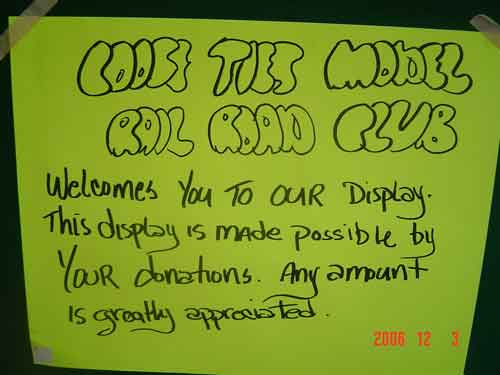 LOOSE TIES MODEL
RAIL ROAD CLUB
Welcomes YOU TO OUR Display.
This display is made possible by
YOUR donations. Any amount
is greatly appreciated.
2006 12 3